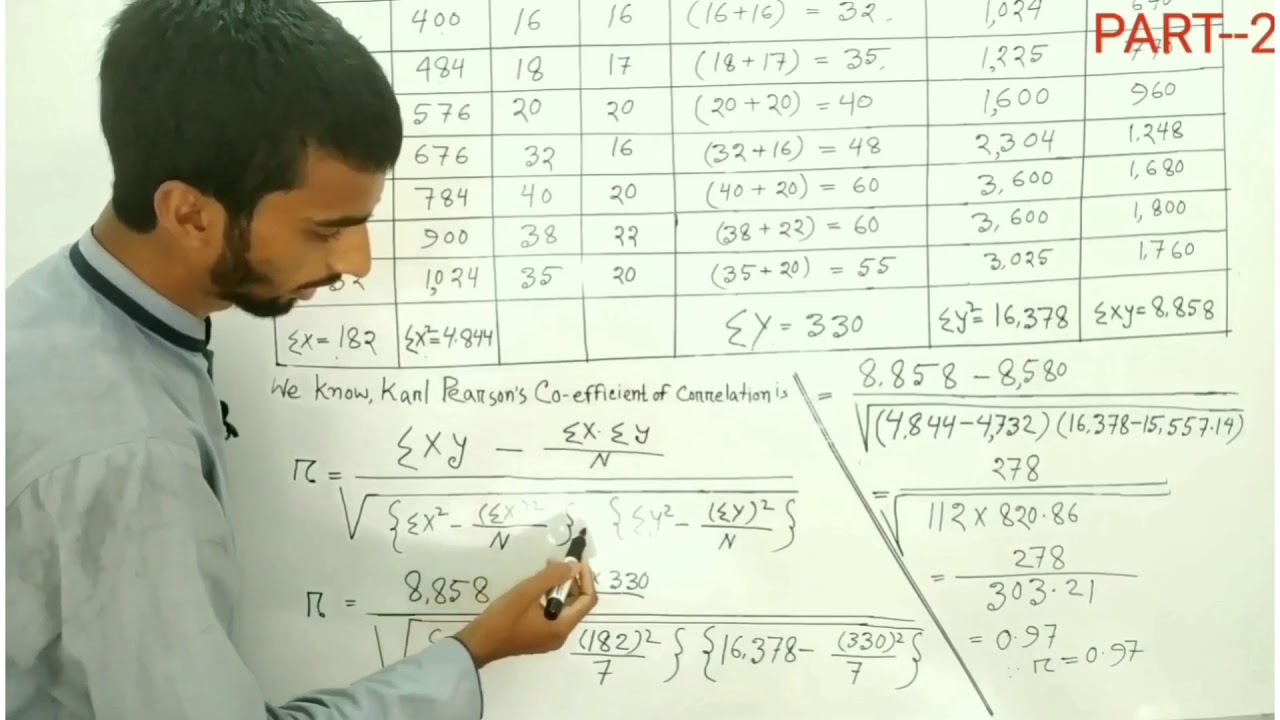 PART--2
400 16 16 (16+16) = 32. 1,024
484 18 17 (18+17) = 35.  1,225
576 20 20 (20+20) = 40 1,600 960
676 32 16 (32+16) = 48 2,304 1.248
784 40 20 (40+20) = 60 3,600 1,680
900 38 22 (38+22) = 60 3,600 1,800
1,024 35 20 (35+20) = 55 3,025 1,760
Σx = 182 Σx²=4.844 Σy = 330 Σy²= 16,378 Σxy=8,858
We Know, Karl Pearson's Co-efficient of Correlation is
r = Σxy - Σx·Σy / N
√{Σx² - (Σx)² / N} {Σy² - (Σy)² / N}
r = 8,858 × 330
(182)² / 7 } {16,378- (330)² / 7 }
= 8.858 - 8,580
√(4,844-4,732) (16,378-15,557.14)
= 278
√112 × 820.86
= 278
303.21
= 0.97
∴ r = 0.97